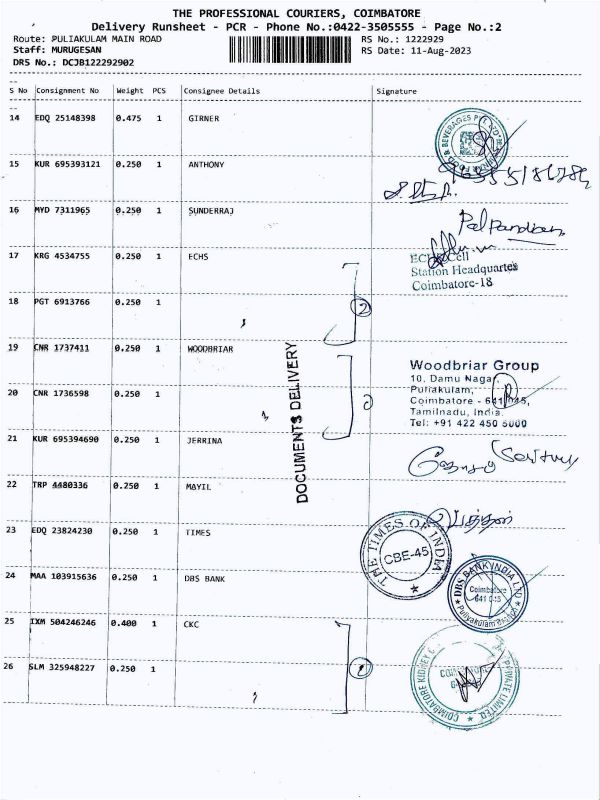 THE PROFESSIONAL COURIERS, COIMBATORE
Delivery Runsheet - PCR - Phone No.:0422-3505555 - Page No.:2
Route: PULIAKULAM MAIN ROAD
RS No.: 1222929
Staff: MURUGESAN
RS Date: 11-Aug-2023
DRS No.: DCJB122292902
S No Consignment No Weight PCS Consignee Details Signature
14 EDQ 25148398 0.475 1 GIRNER
15 KUR 695393121 0.250 1 ANTHONY
16 MYD 7311965 0.250 1 SUNDERRAJ
Pal Pandian
17 KRG 4534755 0.250 1 ECHS
Station Headquarter
Coimbatore-18
18 PGT 6913766 0.250 1
2
19 CNR 1737411 0.250 1 WOODBRIAR
Woodbriar Group
10, Damu Nagar,
Puliakulam,
20 CNR 1736598 0.250 1
Coimbatore - 641 045,
Tamilnadu, India.
Tel: +91 422 450 5000
DOCUMENTS DELIVERY
21 KUR 695394690 0.250 1 JERRINA
22 TRP 4480336 0.250 1 MAYIL
23 EDQ 23824230 0.250 1 TIMES
THE TIMES OF INDIA
CBE-45
24 MAA 103915636 0.250 1 DBS BANK
DBS BANK INDIA LTD
Coimbatore
641 045
25 IXM 504246246 0.400 1 CKC
26 SLM 325948227 0.250 1
1
COIMBATORE KIDNEY
PRIVATE LIMITED